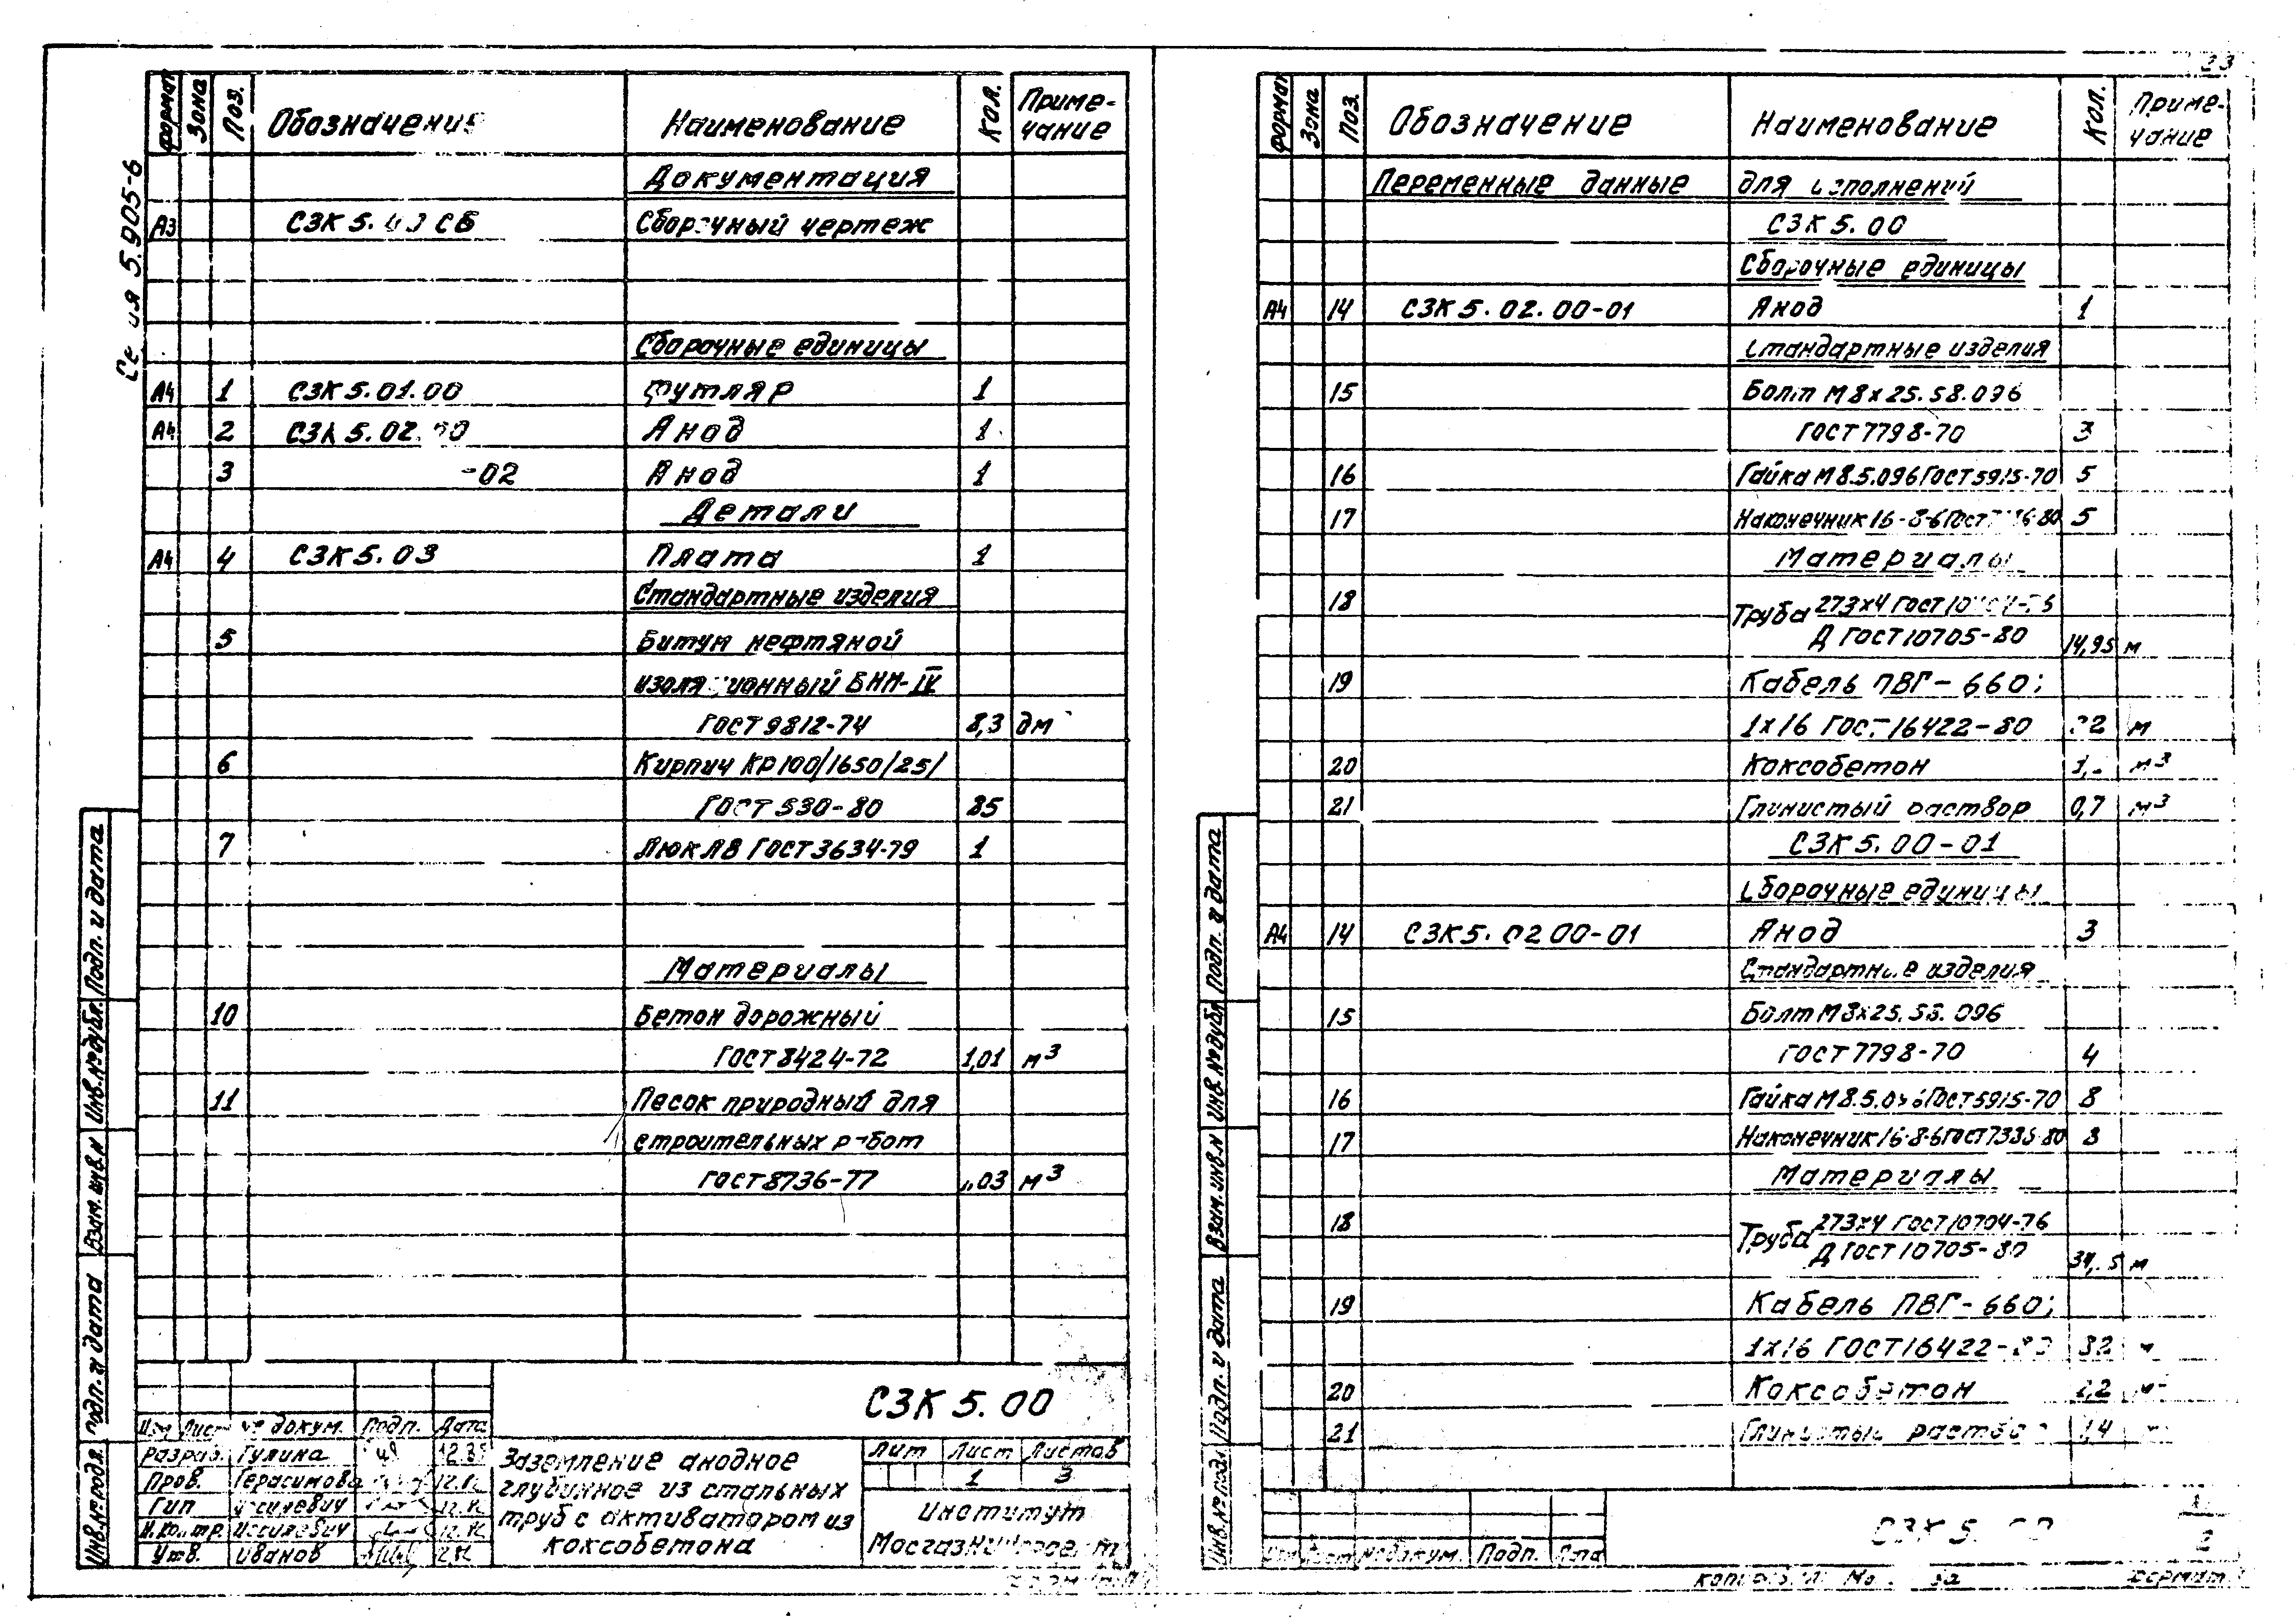 23
5.905-6
Формат Зона Поз. Обозначение Наименование Кол. Приме-
чание
Документация
А3 СЗК 5. СБ Сборочный чертеж
Сборочные единицы
А4 1 СЗК 5.01.00 Футляр 1
А4 2 СЗК 5.02.00 Анод 1
3 -02 Анод 1
Детали
А4 4 СЗК 5.03 Плата 1
Стандартные изделия
5 Битум нефтяной
изоляционный БНИ-IV
ГОСТ 9812-74 8,3 дм
6 Кирпич КР100/1650/25/
ГОСТ 530-80 85
7 Люк Л В ГОСТ 3634-79 1
Материалы
10 Бетон дорожный
ГОСТ 8424-72 1,01 м³
11 Песок природный для
строительных работ
ГОСТ 8736-77 03 м³
Инв.№ подл. Подп. и дата Взам. инв.№ Инв.№ дубл. Подп. и дата
СЗК 5.00
Изм Лист № докум. Подп. Дата
Разраб. Гулина
Пров. Герасимова 12.82
Гип 12.82
Н.контр. 12.82
Утв. Иванов
Заземление анодное
глубинное из стальных
труб с активатором из
коксобетона
Лит Лист Листов
1 3
Институт
МосгазНИИпроект
Формат Зона Поз. Обозначение Наименование Кол. Приме-
чание
Переменные данные для исполнений
СЗК 5.00
Сборочные единицы
А4 14 СЗК 5.02.00-01 Анод 1
Стандартные изделия
15 Болт М8х25.58.096
ГОСТ 7798-70 3
16 Гайка М8.5.096 ГОСТ 5915-70 5
17 Наконечник 16-8-6 ГОСТ 80 5
Материалы
18 Труба 273х4 ГОСТ
Д ГОСТ 10705-80 14,95 м
19 Кабель ПВГ-660;
1х16 ГОСТ 16422-80 м
20 Коксобетон м³
21 Глинистый раствор 0,7 м³
СЗК 5.00-01
Сборочные единицы
А4 14 СЗК 5.02 00-01 Анод 3
Стандартные изделия
15 Болт М8х25.58.096
ГОСТ 7798-70 4
16 Гайка М8.5.096 ГОСТ 5915-70 8
17 Наконечник 16-8-6 ГОСТ 7386-80 8
Материалы
18 Труба 273х4 ГОСТ 10704-76
Д ГОСТ 10705-80 м
19 Кабель ПВГ-660;
1х16 ГОСТ 16422- 32 м
20 Коксобетон 2,2
21 Глинистый раствор
Инв.№ подл. Подп. и дата Взам. инв.№ Инв.№ дубл. Подп. и дата
№ докум. Подп. Дата
СЗК 5. 2
Формат